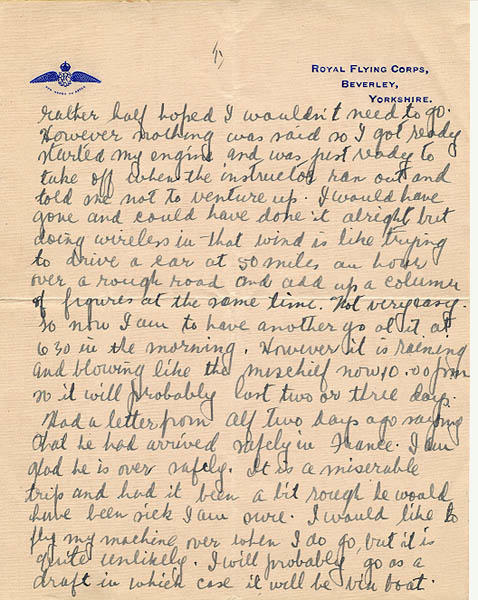 5)
ROYAL FLYING CORPS,
BEVERLEY,
YORKSHIRE.
rather half hoped I wouldn't need to go.
However nothing was said so I got ready
started my engine and was just ready to
take off when the instructor ran out and
told me not to venture up. I would have
gone and could have done it alright but
doing wireless in that wind is like trying
to drive a car at 50 miles an hour
over a rough road and add up a column
of figures at the same time. Not very easy.
So now I am to have another go at it at
6 30 in the morning. However it is raining
and blowing like the mischief now 10.00 pm
so it will probably last two or three days.
Had a letter from Alf two days ago saying
that he had arrived safely in France. I am
glad he is over safely. It is a miserable
trip and had it been a bit rough he would
have been sick I am sure. I would like to
fly my machine over when I do go, but it is
quite unlikely. I will probably go as a
draft in which case it will be via boat.